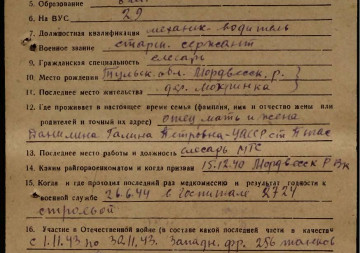 5. Образование
6. На ВУС 29
7. Должностная квалификация механик-водитель
8. Военное звание старш. сержант
9. Гражданская специальность слесарь
10. Место рождения Тульск. обл. Мордвесск. р.
11. Последнее место жительства дер. Мокринка
12. Где проживает в настоящее время семья (фамилия, имя и отчество жены или
родителей и точный их адрес) отец мать и жена
Галина Петровна УзССР ст
13. Последнее место работы и должность слесарь МТС
14. Каким райгорвоенкоматом и когда призван 15.12.40 Мордвесск Р
15. Когда и где проходил последний раз медкомиссию и результат годности к
военной службе 26.6.44 в Госпитале 2724
строевой
16. Участие в Отечественной войне (в составе какой последней части в качеств
с 1.11.43 по 30.11.43. Западн. фр. 256 танков